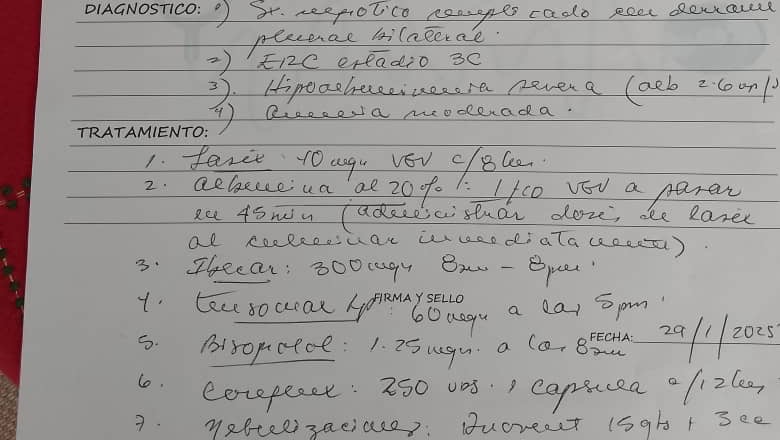 DIAGNOSTICO: 1) Sx. nefrotico complicado con derrame
pleural bilateral.
2) ERC estadio 3C
3). Hipoalbuminemia severa (alb 2.6
4) Anemia moderada.
TRATAMIENTO:
1. Lasix: 40 mgr VEV c/8 hrs.
2. Albumina al 20%: 1 fco VEV a pasar
en 45 min (administrar dosis de lasix
al culminar inmediatamente).
3. Ibecar: 300 mgr 8am - 8pm.
FIRMA Y SELLO
4. tensomax 60 mgr a las 5pm.
5. Bisoprolol: 1.25 mgr. a las 8am FECHA: 29/1/2025
6. 250 uds. 1 capsula c/12 hrs
7. Nebulizaciones: Duovent 15 gts + 3cc